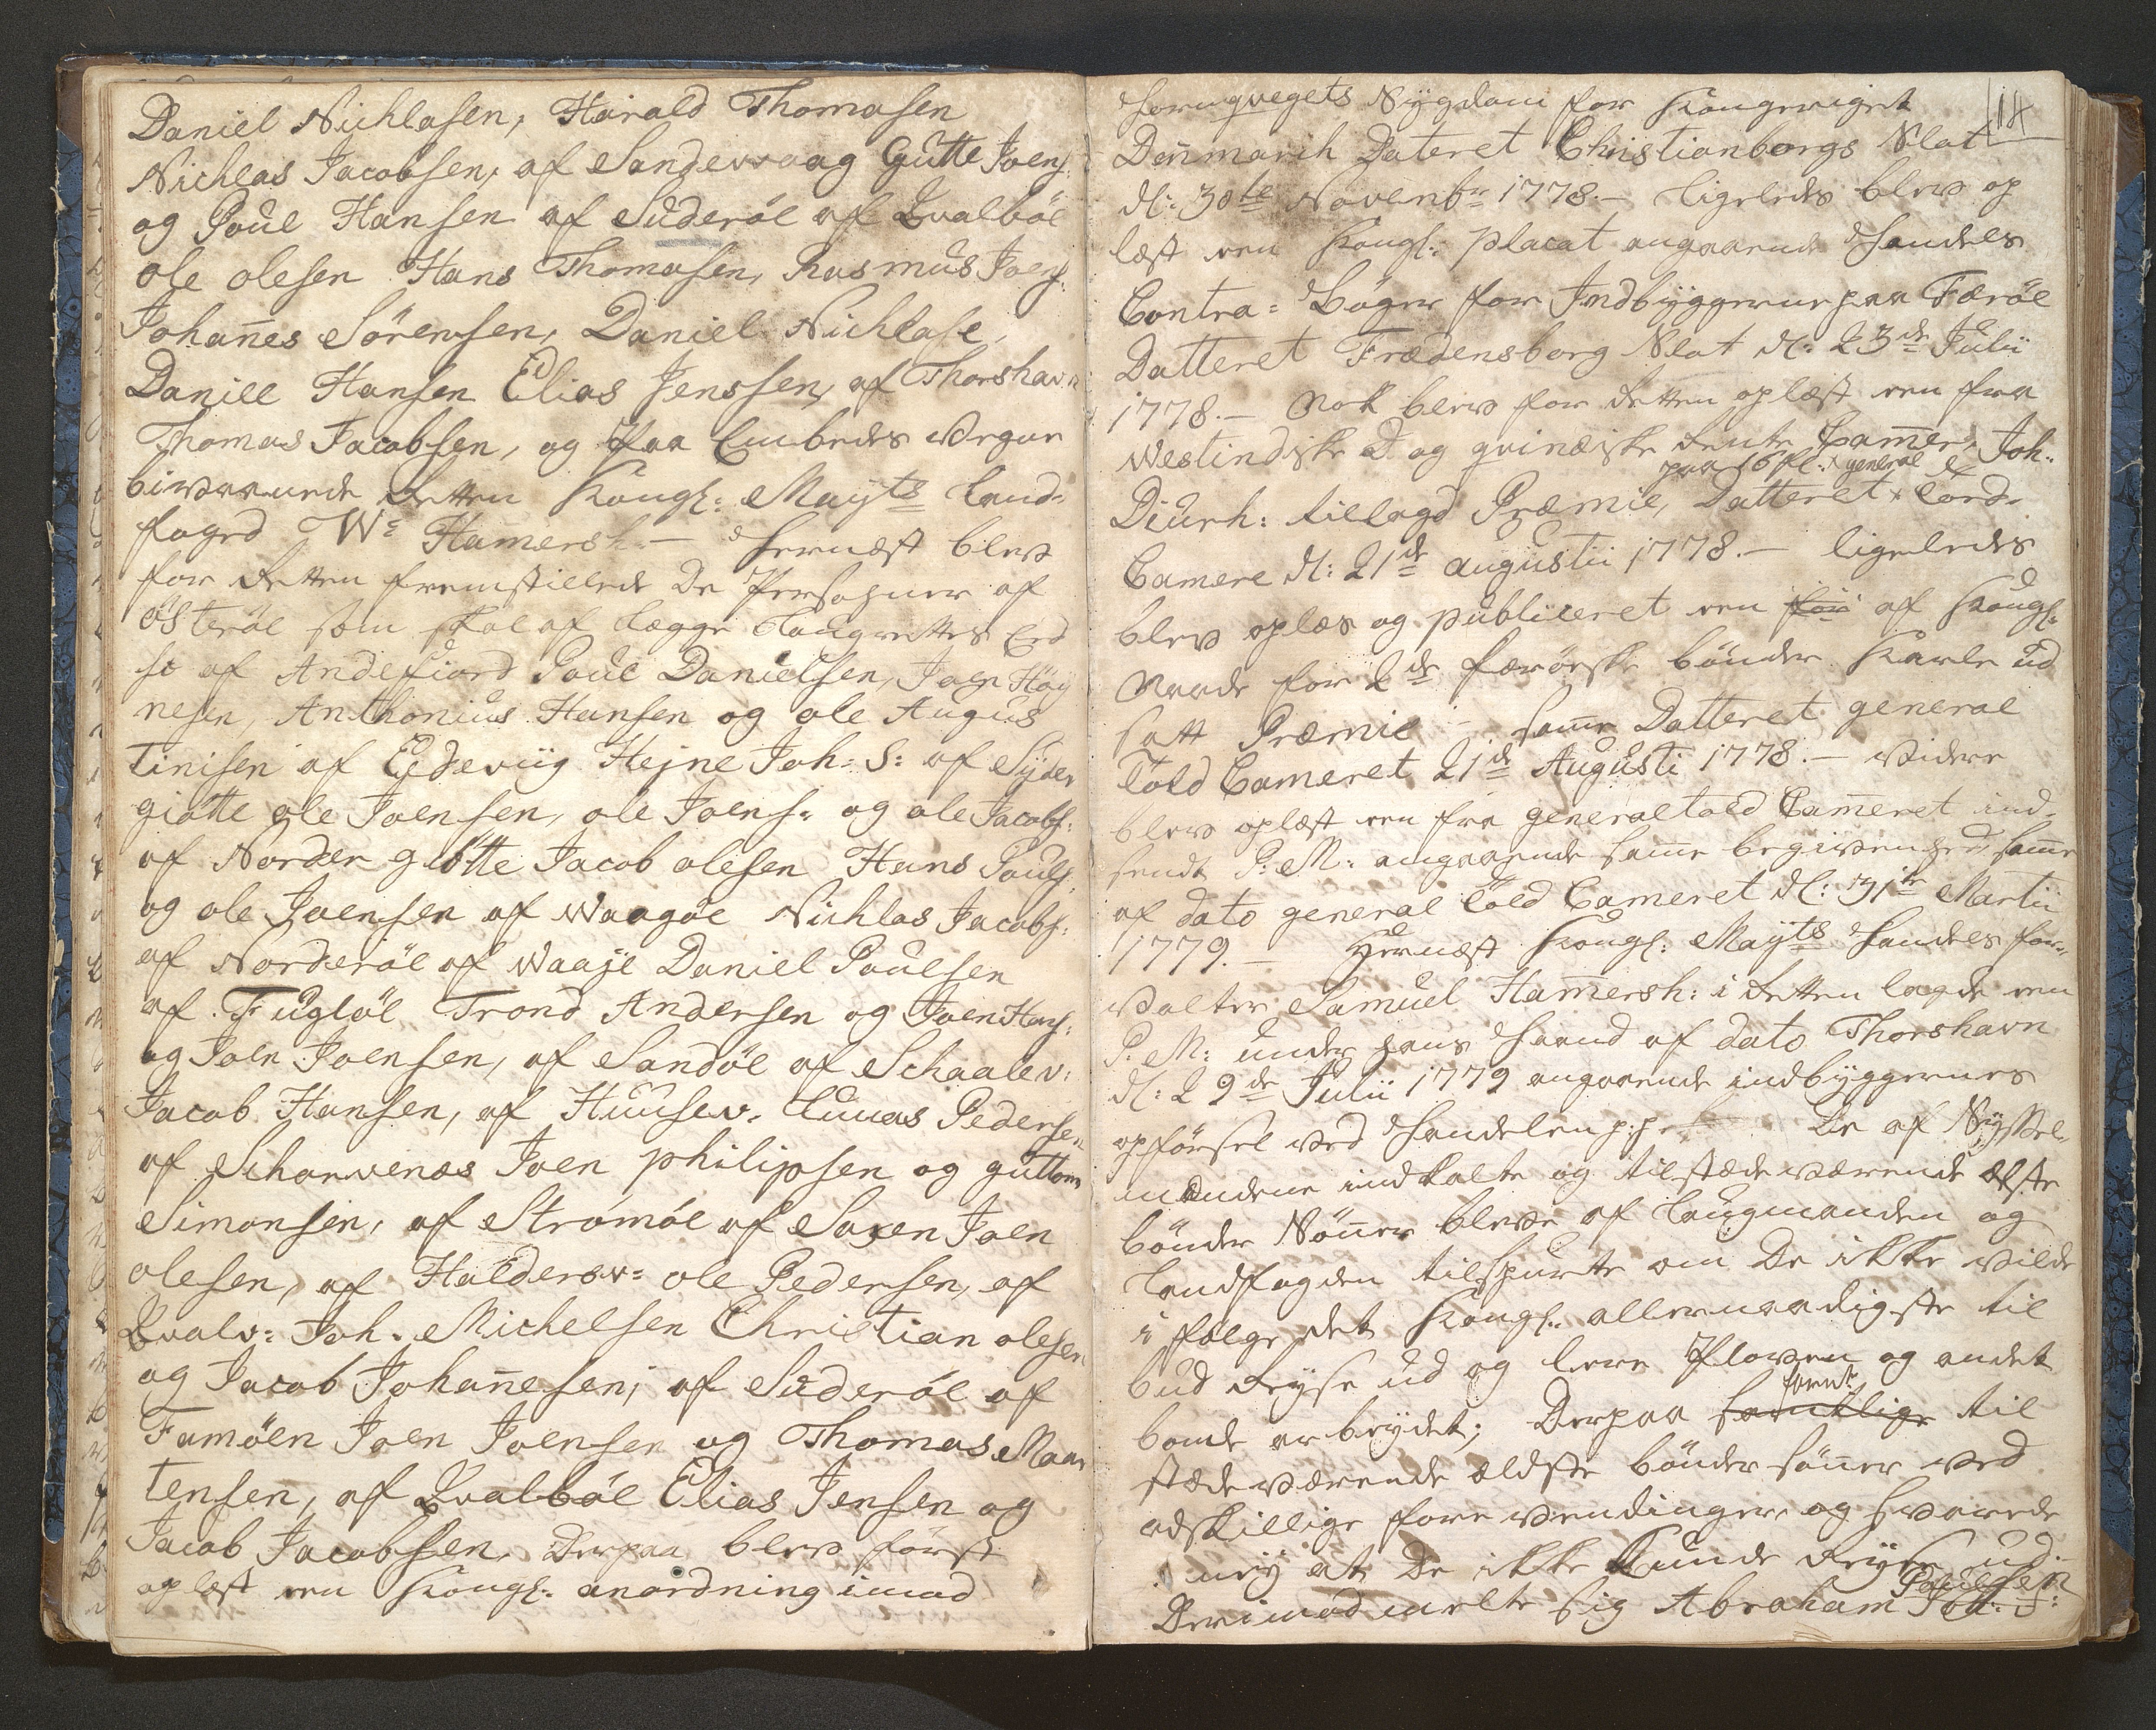 Daniel Nichlasen, Harald Thomasen
Nichlas Jacobsen, af Sandevaag Gutte Joens:
og Poul Hansen af Suderöe af Qvalböe
ole olesen Hans Thomasen, Rasmus Joens:
Johan̄es Sörensen, Daniel Nichlase,
Daniel Hansen Elias Jenssen, af Thorshavn
Thomas Jacobsen, og paa Embeds Vegne
bivaanede Retten Kongl: Mayts Land-
foged Wᵉ Ham̄ersh:— Hernæst blev
for Retten fremstillede De Persohner af
österöe som skal af lægge Laugrettes Eed
sc af Andefiord Poul Danielsen, Joen Höy
nesen, Anthonius Hansen og ole Augus
tinisen af Eidevüg Hejne Joh: S: af Syder
giötte ole Joensen, ole Joens: og ole Jacobs:
af Norder giötte Jacob olesen Hans Pouls:
og ole Joensen af Waagöe Nichlas Jacobs:
af Norderöe af Waaje Daniel Poulsen
af Fuglöe Trond Andersen og Joen Hans:
og Joen Joensen, af Sandöe af Schaalev:
Jacob Hansen, af Huusev: Lucas Pedersen
af Scharvenæs Joen philipsen og guttorm
Simonsen, af Strömöe af Saxen Joen
olesen, af Haldersv: ole Pedersen, af
Qvalv: Joh: Michelsen Christian olesen
og Jacob Johan̄esen; af Suderöe af
Famöen Joen Joensen og Thomas Maar
tensen, af Qvalböe Elias Jensen og
Jacob Jacobsen, Derpaa blev först
oplæst een Kongl: anordning imod
Hornqvegets Sygdom for Kongeriget
14
Den̄march Dateret Christianborgs Slot
d: 30te Novembr 1778.— Ligeleds blev op
læst een Kongl: placat angaaende Handels
Contra= Böger for Indbyggerne paa Færöe
Datteret Frædensborg Slot d: 23de Julii
1778.— Nok blev for Retten oplæst een fra
Westindiske D og guinæiske Rente Cam̄er, Joh:
paa 16 rl: general
Diurh: tillagd Præmie, Datteret Told-
Camere d: 21de augustii 1778.— ligeledes
blev oplæs og publiceret een for af Kongl:
Naade for 2de færöeske bönder Karle ud
satt Præmie – samme Datteret general
Told Cameret 21de Augusti 1778.— Videre
blev oplæst een fra general told Cam̄eret ind-
sendt P: M: angaaende samme begivenhed, samme
af dato general Told Cameret d: 31te Martii
1779.— Hernæst Kongl: Mayts Handels for-
valter Samuel Ham̄ersh: i Retten lagde een
P: M: under hans Haand af dato Thorshavn
d: 29de Julii 1779 angaaende indbyggernes
opförsel ved Handelen p: p: De af Syssel-
mændene indkalte og tilstædeværende ælste
bönder Sön̄er bleve af Laugmanden og
Landfogden tilspurte om De ikke vilde
i fölge det Kongl: allernaadigste til
bud Reyse ud og lære Ploven og andet
bonde arbeydet; Derpaa samtlige til
stædeværende ældste bönder sön̄er ved
adskillige forevendinger, og svarede
ney at De ikke kunde Reyse ud.
Poulsen
Derimod melte sig Abraham Joh: S: